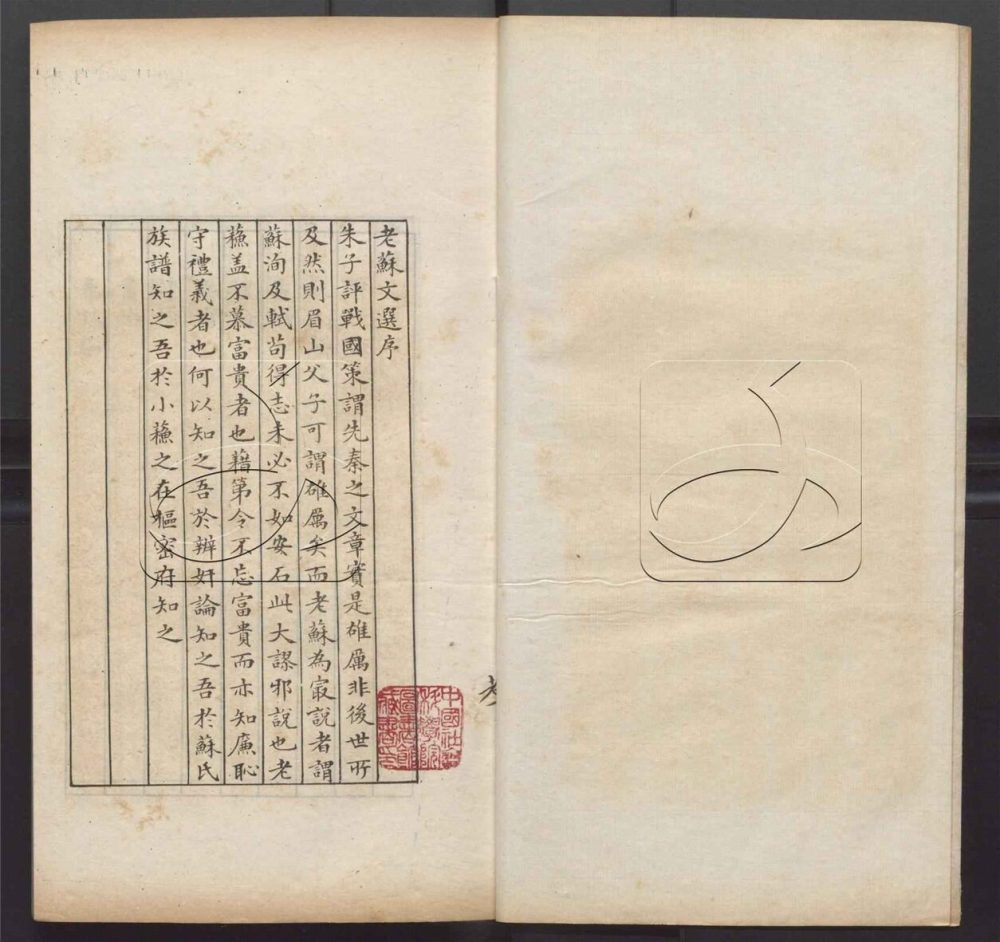 老蘇文選序
朱子評戰國策謂先秦之文章實是雄厲非後世所
及然則眉山父子可謂雄厲矣而老蘇為最說者謂
蘇洵及軾苟得志未必不如安石此大謬邪說也老
蘓盖不慕富貴者也籍第令不忘富貴而亦知廉恥
守禮義者也何以知之吾於辨奸論知之吾於蘇氏
族譜知之吾於小蘓之在樞密府知之
中國社會
科學院
圖書館
藏書